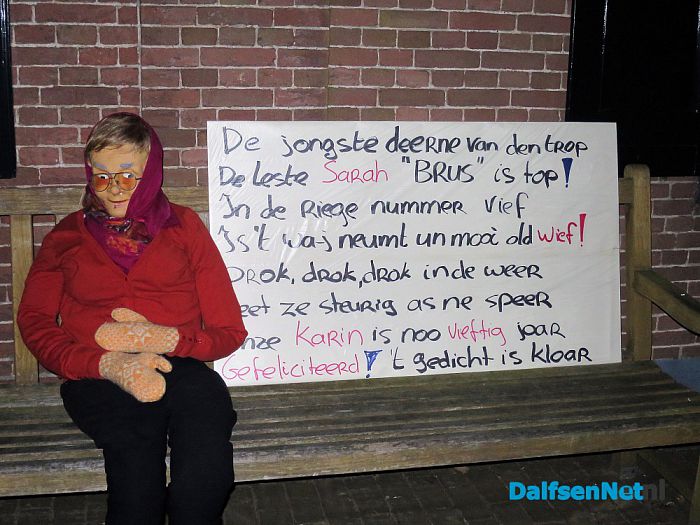 De jongste deerne van den trop
De leste Sarah "BRUS" is top!
In de Riege nummer Vief
Is 't wa-j neumt un mooi old wief!
DROK, drok, drok in de weer
eet ze steurig as ne speer
nze Karin is noo vieftig jaar
Gefeliciteerd! 't gedicht is kloar
DalfsenNet.nl